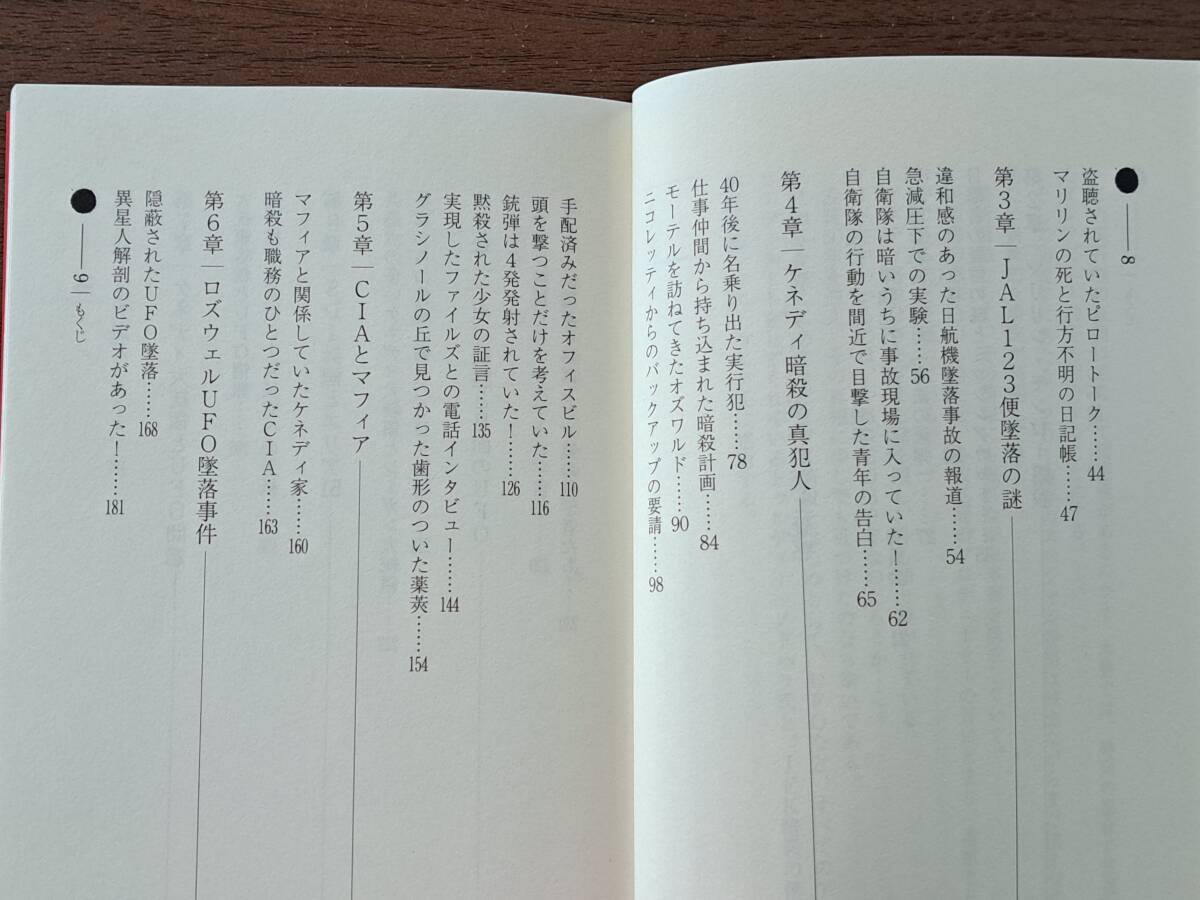 8
盗聴されていたピロートーク……44
マリリンの死と行方不明の日記帳……47
第3章｜JAL123便墜落の謎
違和感のあった日航機墜落事故の報道……54
急減圧下での実験……56
自衛隊は暗いうちに事故現場に入っていた！……62
自衛隊の行動を間近で目撃した青年の告白……65
第4章｜ケネディ暗殺の真犯人
40年後に名乗り出た実行犯……78
仕事仲間から持ち込まれた暗殺計画……84
モーテルを訪ねてきたオズワルド……90
ニコレッティからのバックアップの要請……98
手配済みだったオフィスビル……110
頭を撃つことだけを考えていた……116
銃弾は4発発射されていた！……126
黙殺された少女の証言……135
実現したファイルズとの電話インタビュー……144
グラシノールの丘で見つかった歯形のついた薬莢……154
第5章｜CIAとマフィア
マフィアと関係していたケネディ家……160
暗殺も職務のひとつだったCIA……163
第6章｜ロズウェルUFO墜落事件
隠蔽されたUFO墜落……168
異星人解剖のビデオがあった！……181
9｜もくじ